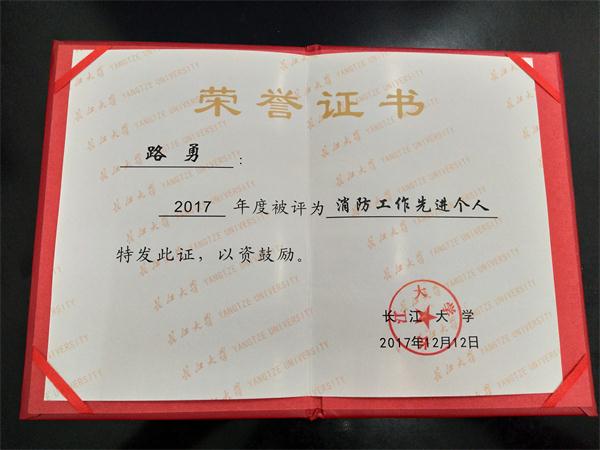 荣誉证书
路勇：
2017 年度被评为 消防工作先进个人
特发此证，以资鼓励。
长江大学
2017年12月12日
长江大学 YANGTZE UNIVERSITY